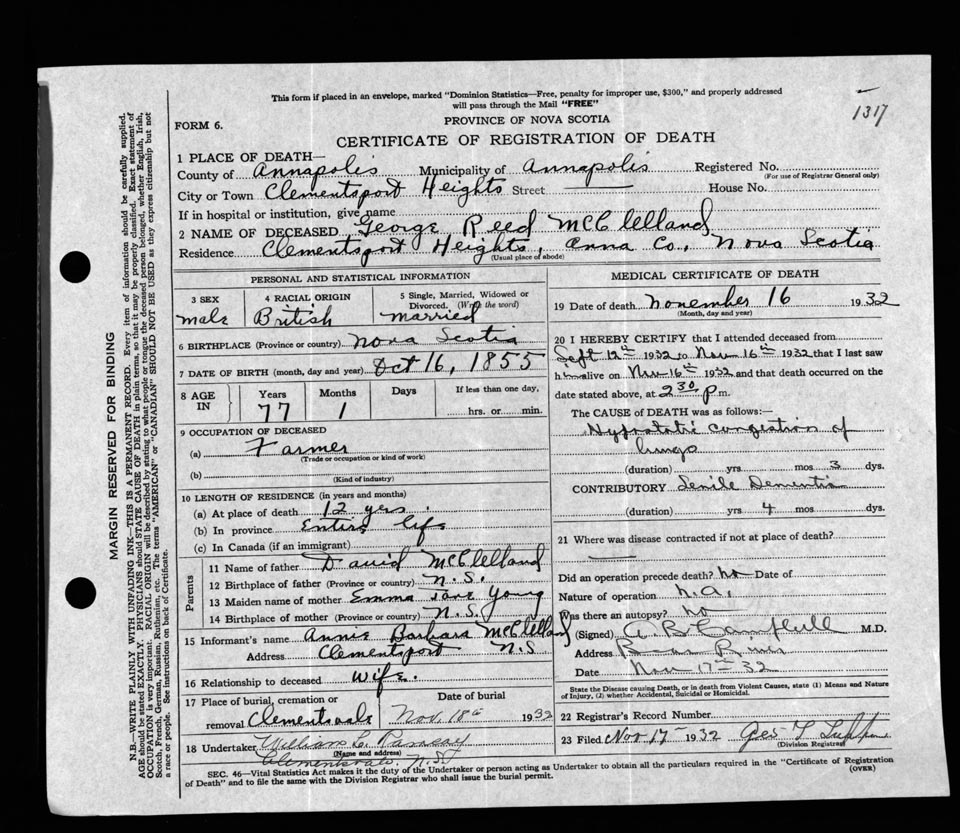 This form if placed in an envelope, marked "Dominion Statistics—Free, penalty for improper use, $300," and properly addressed
will pass through the Mail "FREE"
1317
FORM 6.
PROVINCE OF NOVA SCOTIA
CERTIFICATE OF REGISTRATION OF DEATH
1 PLACE OF DEATH—
County of Annapolis Municipality of Annapolis Registered No.
(For use of Registrar General only)
City or Town Clementsport Heights Street House No.
If in hospital or institution, give name
2 NAME OF DECEASED George Reed McClelland
Residence Clementsport Heights, Anna Co., Nova Scotia
(Usual place of abode)
PERSONAL AND STATISTICAL INFORMATION
3 SEX male
4 RACIAL ORIGIN British
5 Single, Married, Widowed or Divorced. (Write the word) married
6 BIRTHPLACE (Province or country) Nova Scotia
7 DATE OF BIRTH (month, day and year) Oct 16, 1855
8 AGE IN Years 77 Months 1 Days If less than one day, hrs. or min.
9 OCCUPATION OF DECEASED
(a) Farmer
(Trade or occupation or kind of work)
(b)
(Kind of industry)
10 LENGTH OF RESIDENCE (in years and months)
(a) At place of death 12 yrs.
(b) In province Entire life
(c) In Canada (if an immigrant)
Parents
11 Name of father David McClelland
12 Birthplace of father (Province or country) N.S.
13 Maiden name of mother Emma Jane Young
14 Birthplace of mother (Province or country) N.S.
15 Informant's name Annie Barbara McClelland
Address Clementsport N.S
16 Relationship to deceased wife.
17 Place of burial, cremation or removal Clementsvale Date of burial Nov. 18th 1932
18 Undertaker William L. Ramsay
(Name and address)
Clementsvale, N.S.
MEDICAL CERTIFICATE OF DEATH
19 Date of death November 16 1932
(Month, day and year)
20 I HEREBY CERTIFY that I attended deceased from
Sept 12th 1932 to Nov 16th 1932 that I last saw
him alive on Nov 16th 1932 and that death occurred on the
date stated above, at 2 30 p m.
The CAUSE OF DEATH was as follows:—
Hypostatic congestion of
lungs
(duration) yrs mos 3 dys.
CONTRIBUTORY Senile Dementia
(duration) yrs 4 mos dys.
21 Where was disease contracted if not at place of death?
Did an operation precede death? no Date of
Nature of operation n.a.
Was there an autopsy? no
(Signed) A B Campbell M.D.
Address Bear River
Date Nov 17th 32
State the Disease causing Death, or in death from Violent Causes, state (1) Means and Nature
of Injury, (2) whether Accidental, Suicidal or Homicidal.
22 Registrar's Record Number
23 Filed Nov 17 1932 Geo T
(Division Registrar)
SEC. 46—Vital Statistics Act makes it the duty of the Undertaker or person acting as Undertaker to obtain all the particulars required in the "Certificate of Registration
of Death" and to file the same with the Division Registrar who shall issue the burial permit.
(OVER)
MARGIN RESERVED FOR BINDING
N.B.—WRITE PLAINLY WITH UNFADING INK—THIS IS A PERMANENT RECORD. Every item of information should be carefully supplied.
AGE should be stated EXACTLY. PHYSICIANS should STATE CAUSE OF DEATH in plain terms, so that it may be properly classified. Exact statement of
OCCUPATION is very important. RACIAL ORIGIN will be described by stating to what people or tongue the deceased person belonged, whether English, Irish,
Scotch, French, German, Russian, Ruthenian, etc. The terms "AMERICAN" or "CANADIAN" SHOULD NOT BE USED as they express citizenship but not
a race or people. See instructions on back of Certificate.